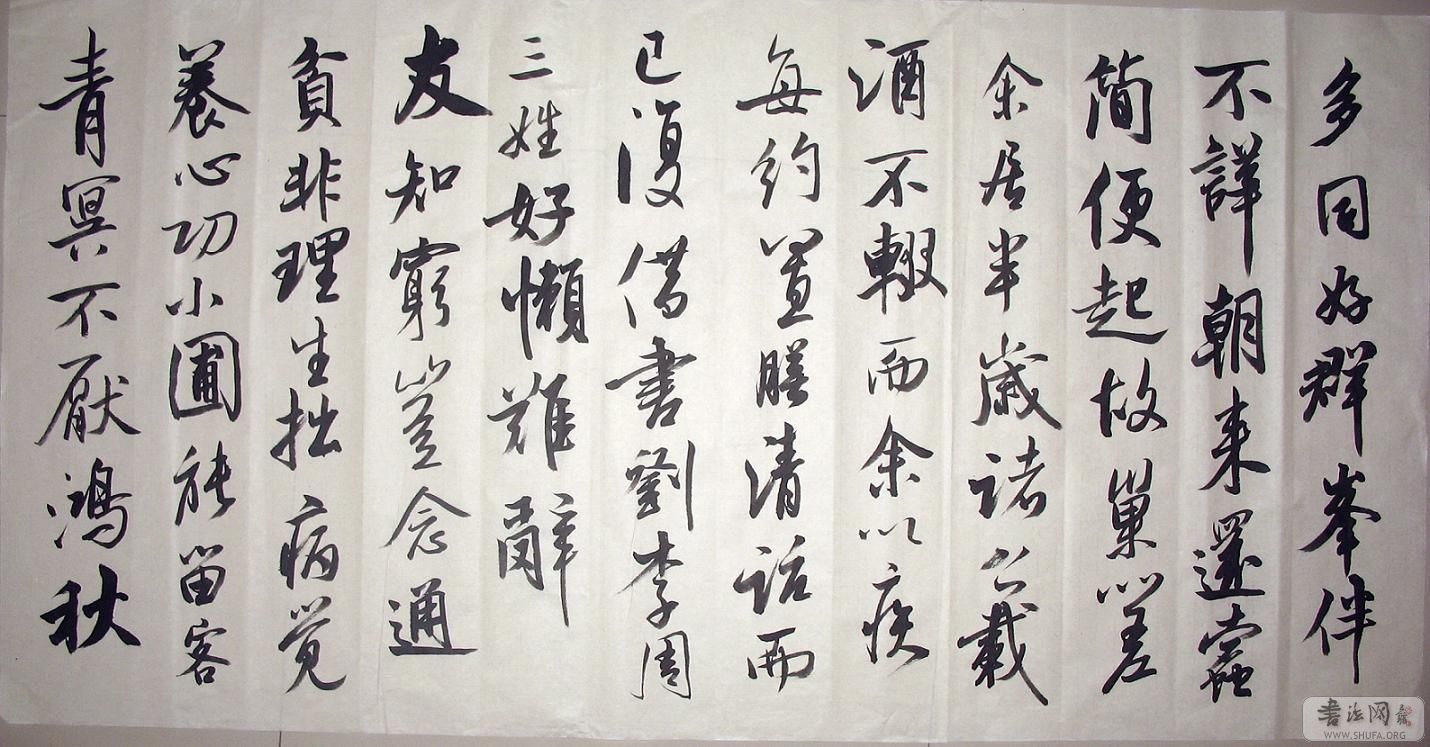 多同好群峯伴
不譁朝来還蠹
簡便起故巢嗟
余居半歲諸公載
酒不輟而余以疾
每約置膳清話而
已復借書劉李周
三姓好懶難辭
友知窮豈念通
貧非理生拙病覺
養心功小圃能留客
青冥不厭鴻秋
書法网
WWW.SHUFA.ORG